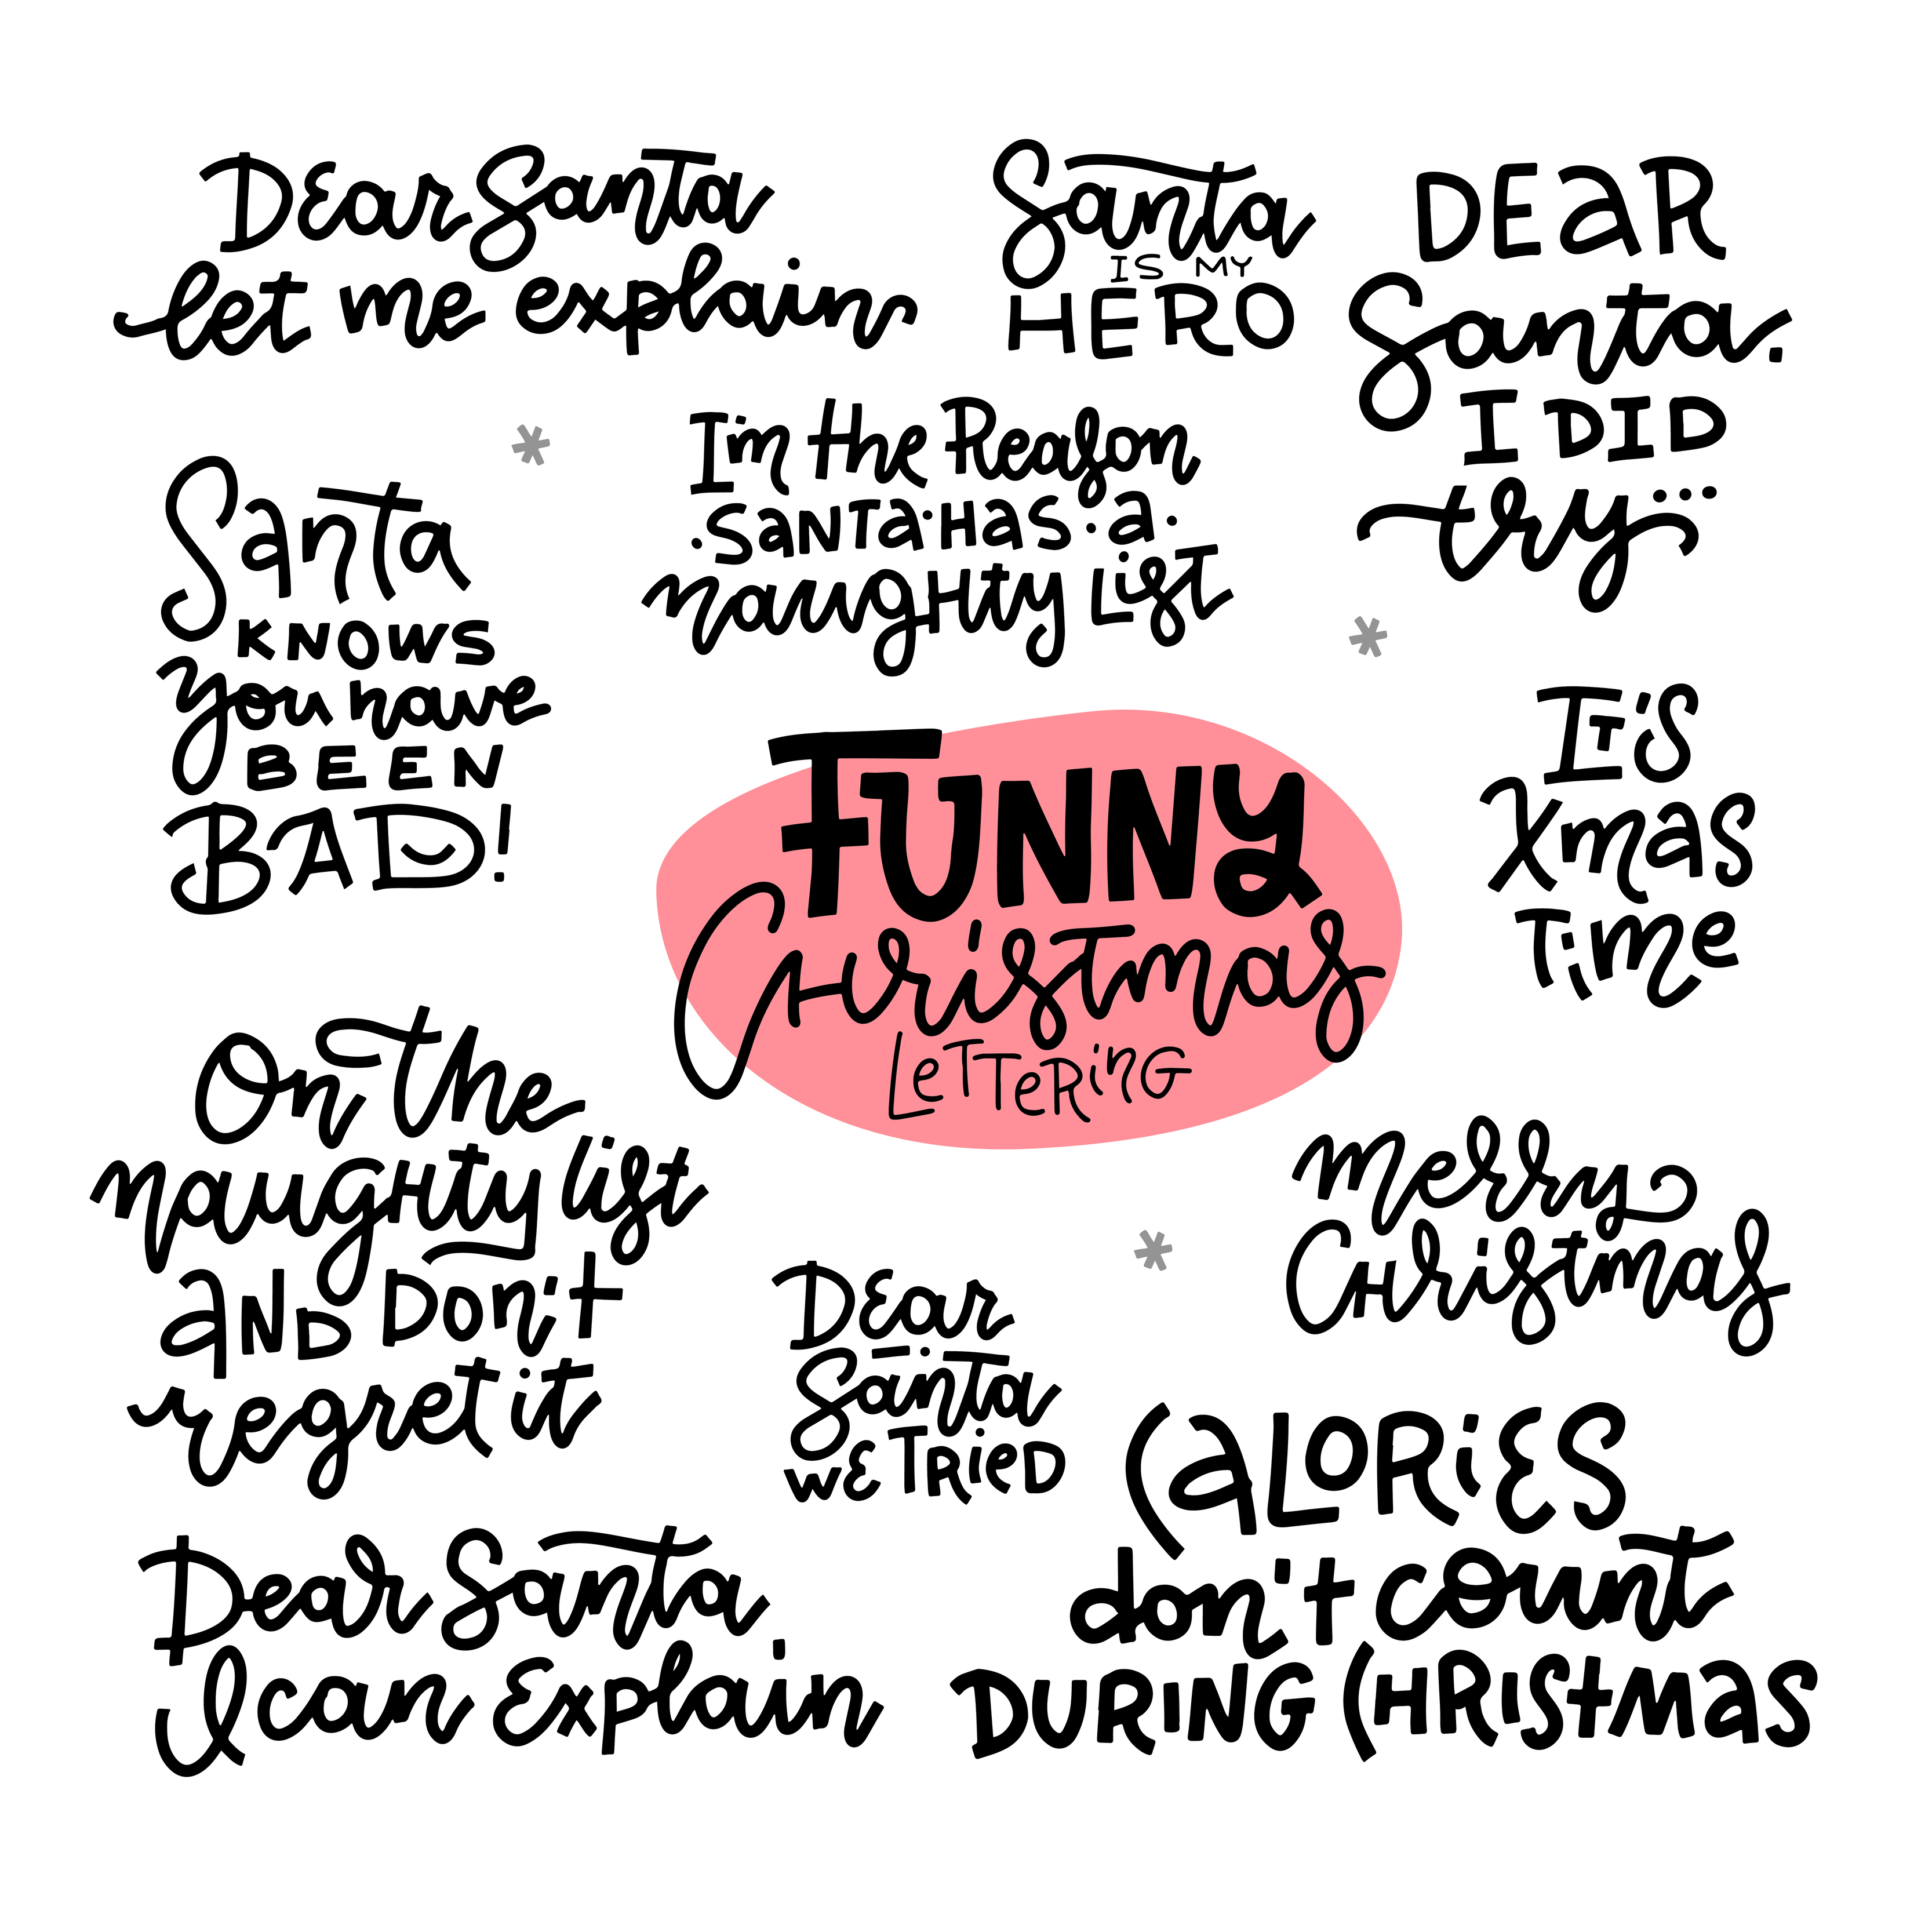 Dear Santa
let me explain
Santa
IS MY
HERO
DEAR
Santa.
I DID
try...
I'm the Reason
SaNTa Has a
naughty list
Santa
KNOWS
you have
BEEN
BAD!
FUNNy
Christmas
LeTTeRinG
It's
Xmas
Time
On The
naughty list
aND Don't
regret it
merry
Christmas
Dear
Santa
we TRieD
CaLORiES
don't count
DURING CHRIstMas
Dear Santa
I can Explain